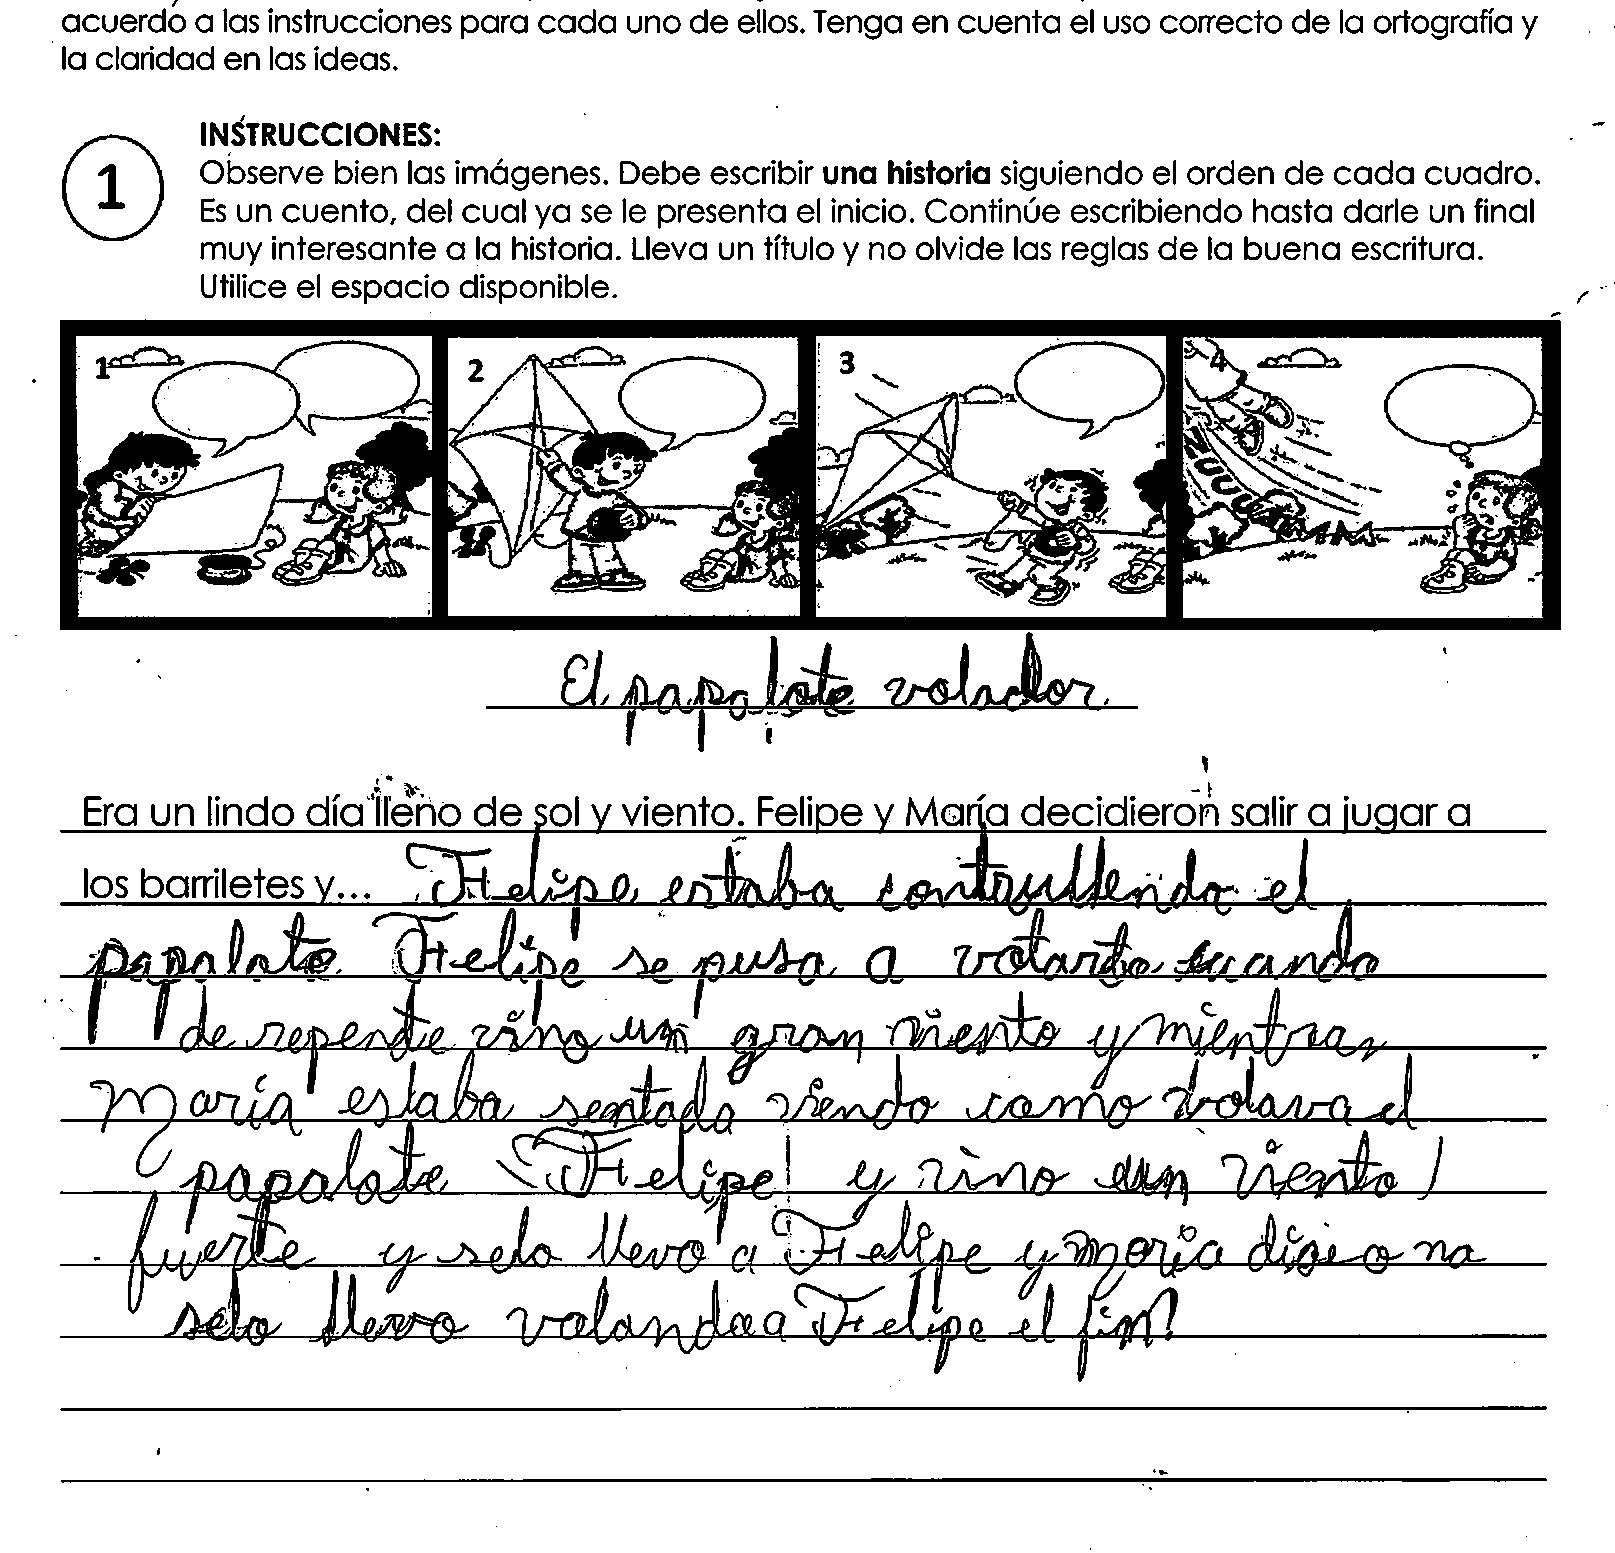 acuerdo a las instrucciones para cada uno de ellos. Tenga en cuenta el uso correcto de la ortografía y
la claridad en las ideas.
INSTRUCCIONES:
1
Observe bien las imágenes. Debe escribir una historia siguiendo el orden de cada cuadro.
Es un cuento, del cual ya se le presenta el inicio. Continúe escribiendo hasta darle un final
muy interesante a la historia. Lleva un título y no olvide las reglas de la buena escritura.
Utilice el espacio disponible.
1 2 3 4
El papalote volador
Era un lindo día lleno de sol y viento. Felipe y María decidieron salir a jugar a
los barriletes y... Felipe estaba contrullendo el
papalote Felipe se puso a volarlo cuando
de repente vino un gran viento y mientras
María estaba sentada viendo como volava el
papalote Felipe y vino un viento
fuerte y selo llevo a Felipe y maria dise o no
selo llevo volando a Felipe el fin!